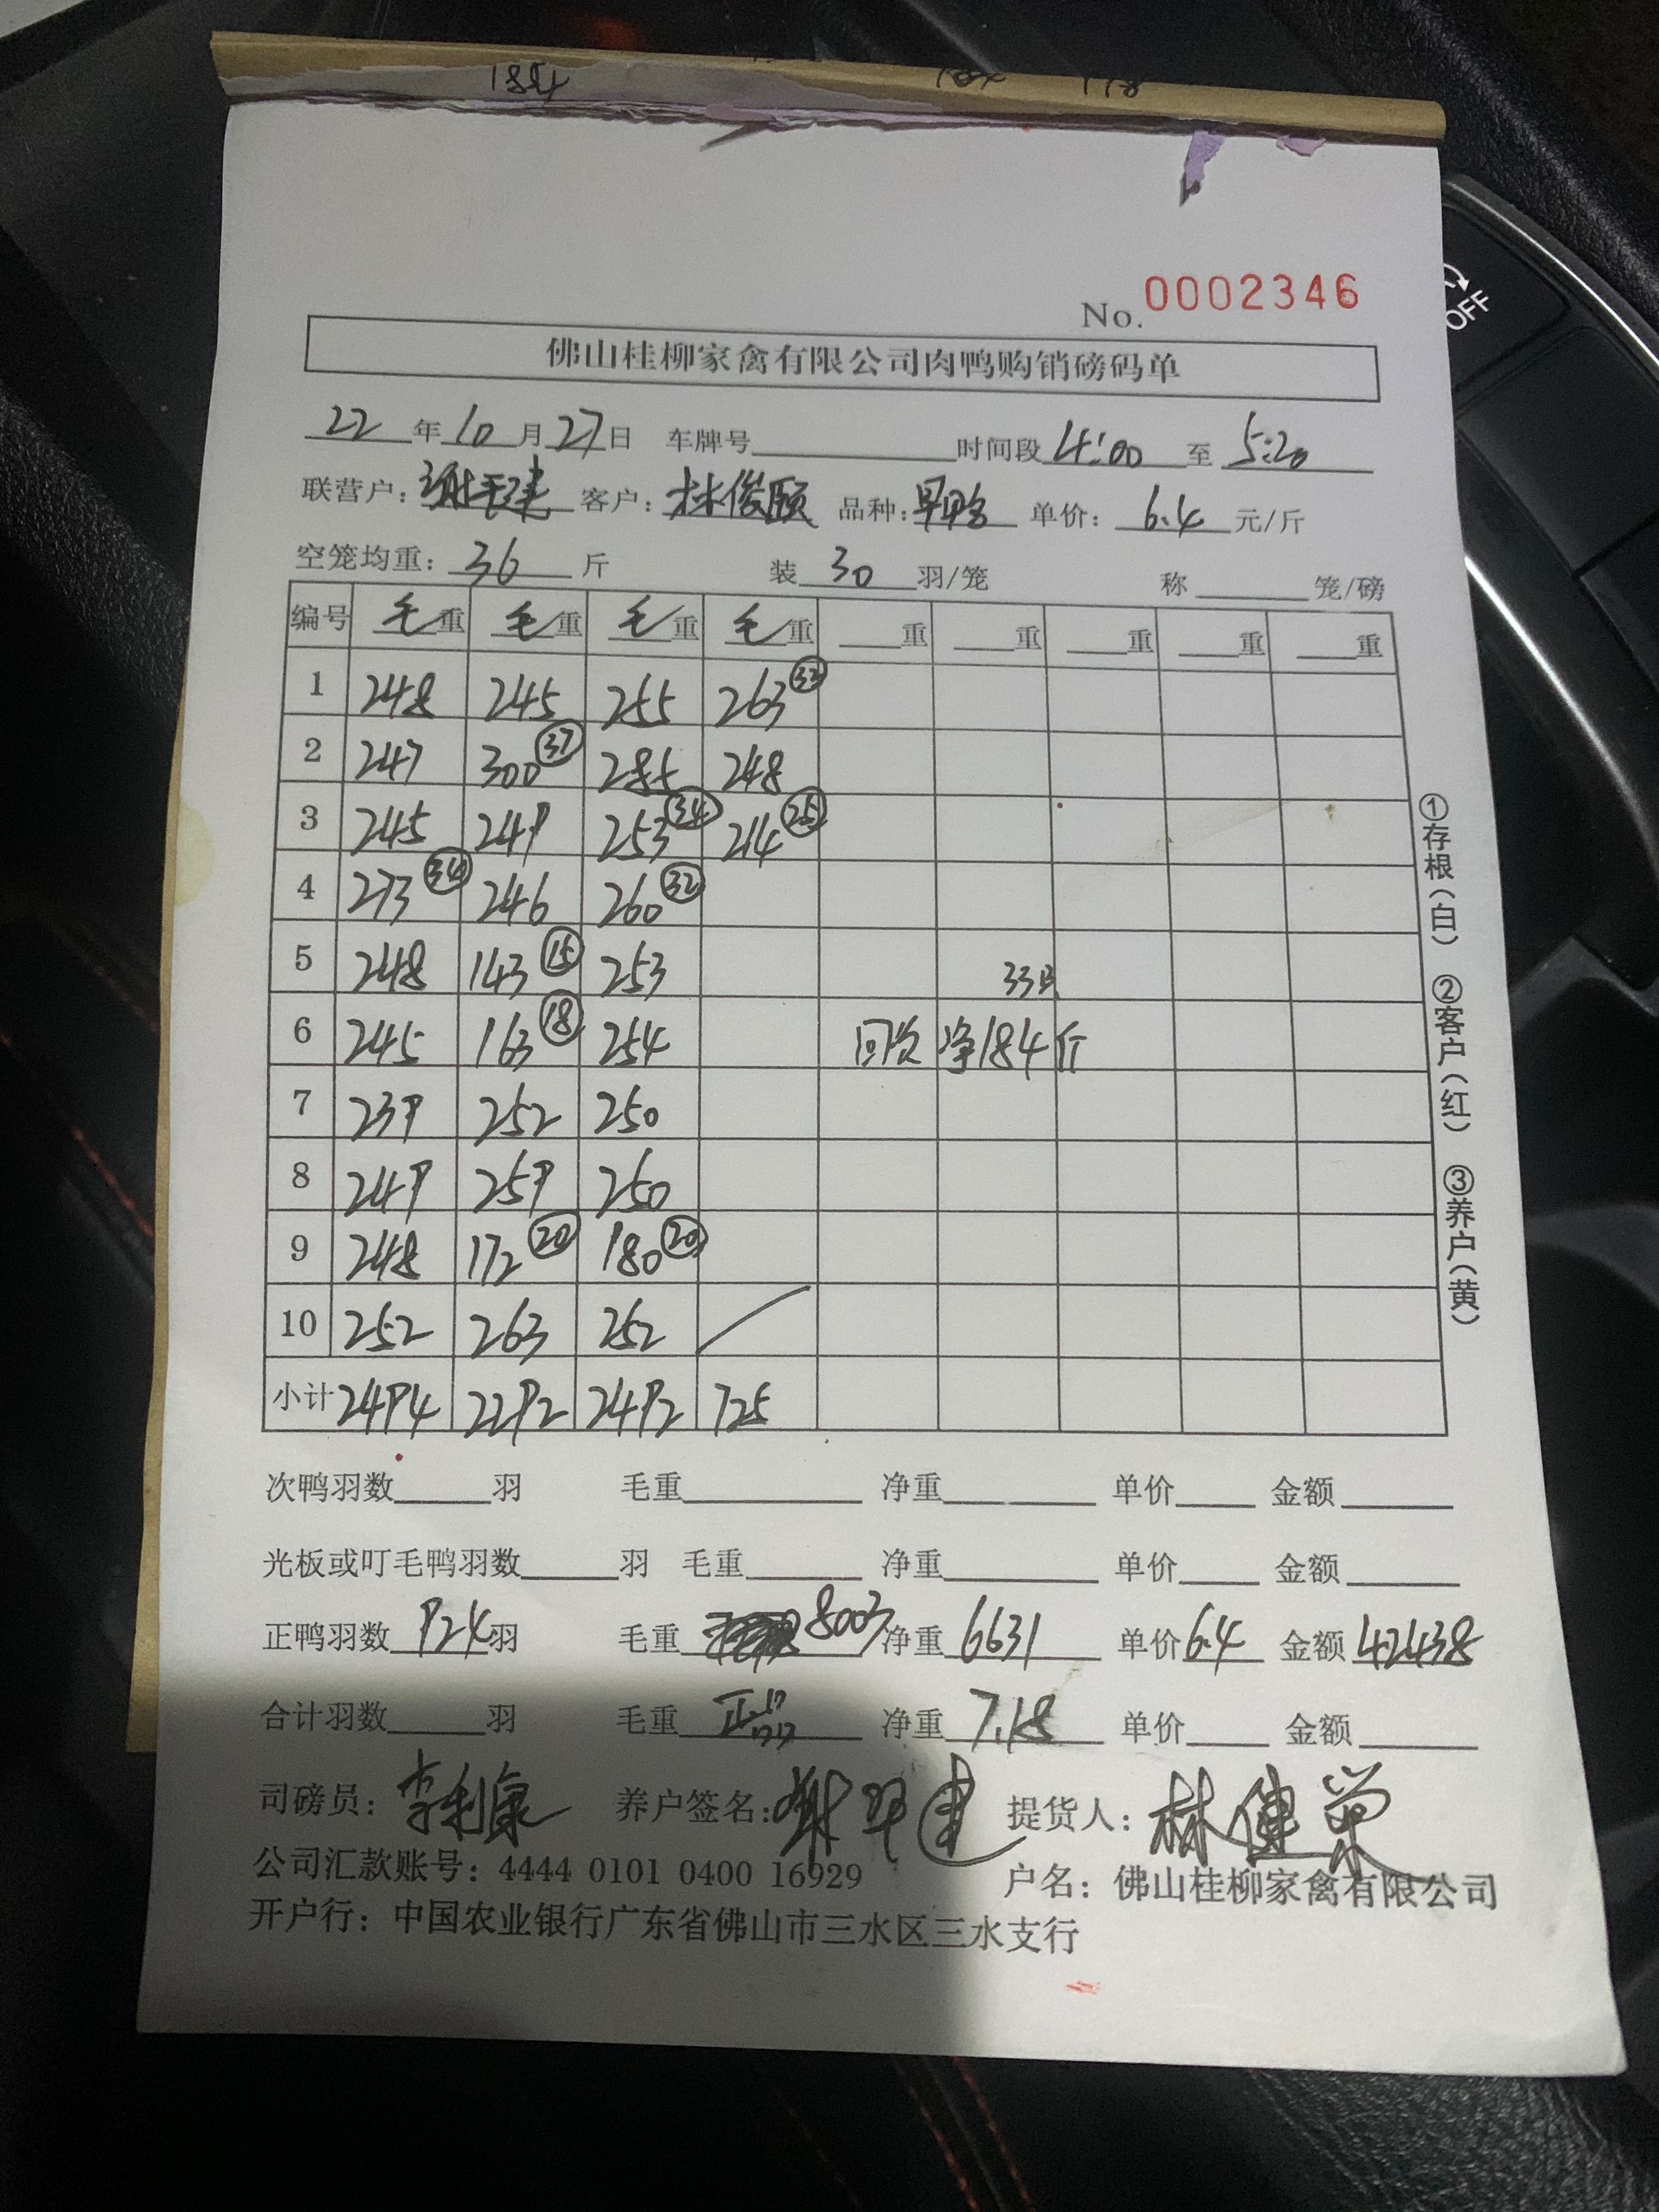 No. 0002346
佛山桂柳家禽有限公司肉鸭购销磅码单
22 年 10 月 27 日 车牌号 时间段 4:00 至 5:20
联营户: 客户: 林俊颐 品种: 单价: 6.4 元/斤
空笼均重: 36 斤 装 30 羽/笼 称 笼/磅
编号 毛重 毛重 毛重 毛重 重 重 重 重 重
1 248 245 255 263 ㉝
2 247 300 ㊲ 285 248
3 245 249 253 ㉞ 214 ㉕
4 273 ㉞ 246 260 ㉜
5 248 143 ⑮ 253 33只
6 245 163 ⑱ 254 回次 净184斤
7 239 252 250
8 249 259 250
9 248 172 ⑳ 180 ⑳
10 252 263 252
小计 2494 2292 2492 725
①存根(白) ②客户(红) ③养户(黄)
次鸭羽数 羽 毛重 净重 单价 金额
光板或叮毛鸭羽数 羽 毛重 净重 单价 金额
正鸭羽数 924 羽 毛重 8003 净重 6631 单价 6.4 金额 42438
合计羽数 羽 毛重 正品 净重 7.18 单价 金额
司磅员: 李利康 养户签名: 提货人: 林健荣
公司汇款账号: 4444 0101 0400 16929 户名: 佛山桂柳家禽有限公司
开户行: 中国农业银行广东省佛山市三水区三水支行